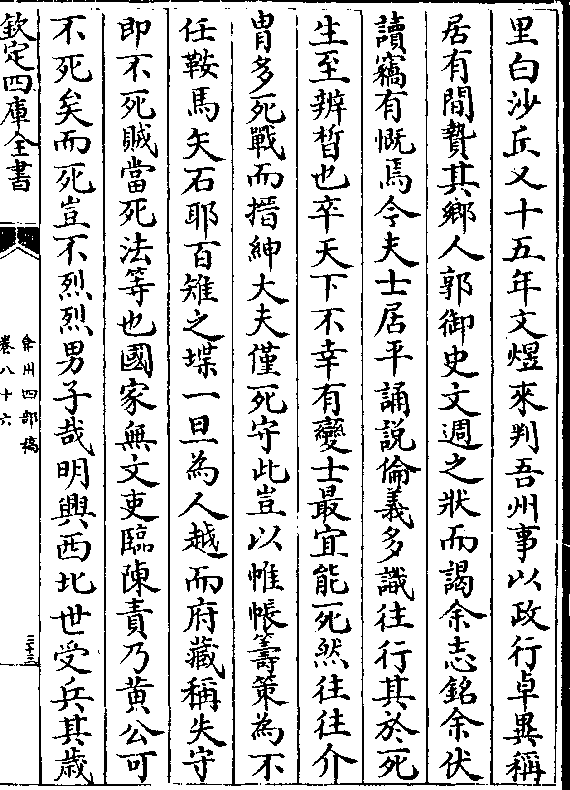 里白沙丘又十五年文煜來判吾州事以政行卓異稱
居有間贄其鄉人郭御史文週之狀而謁余志銘余伏
讀竊有慨焉今夫士居平誦說倫義多識往行其於死
生至辨晢也卒天下不幸有變士最宜能死然往往介
胄多死戰而搢紳大夫僅死守此豈以帷帳籌策為不
任鞍馬矢石耶百雉之堞一旦為人越而府藏稱失守
即不死賊當死法等也國家無文吏臨陳責乃黄公可
不死矣而死豈不烈烈男子哉明興西北世受兵其歲
欽定四庫全書
弇州四部稿
卷八十六
三十三